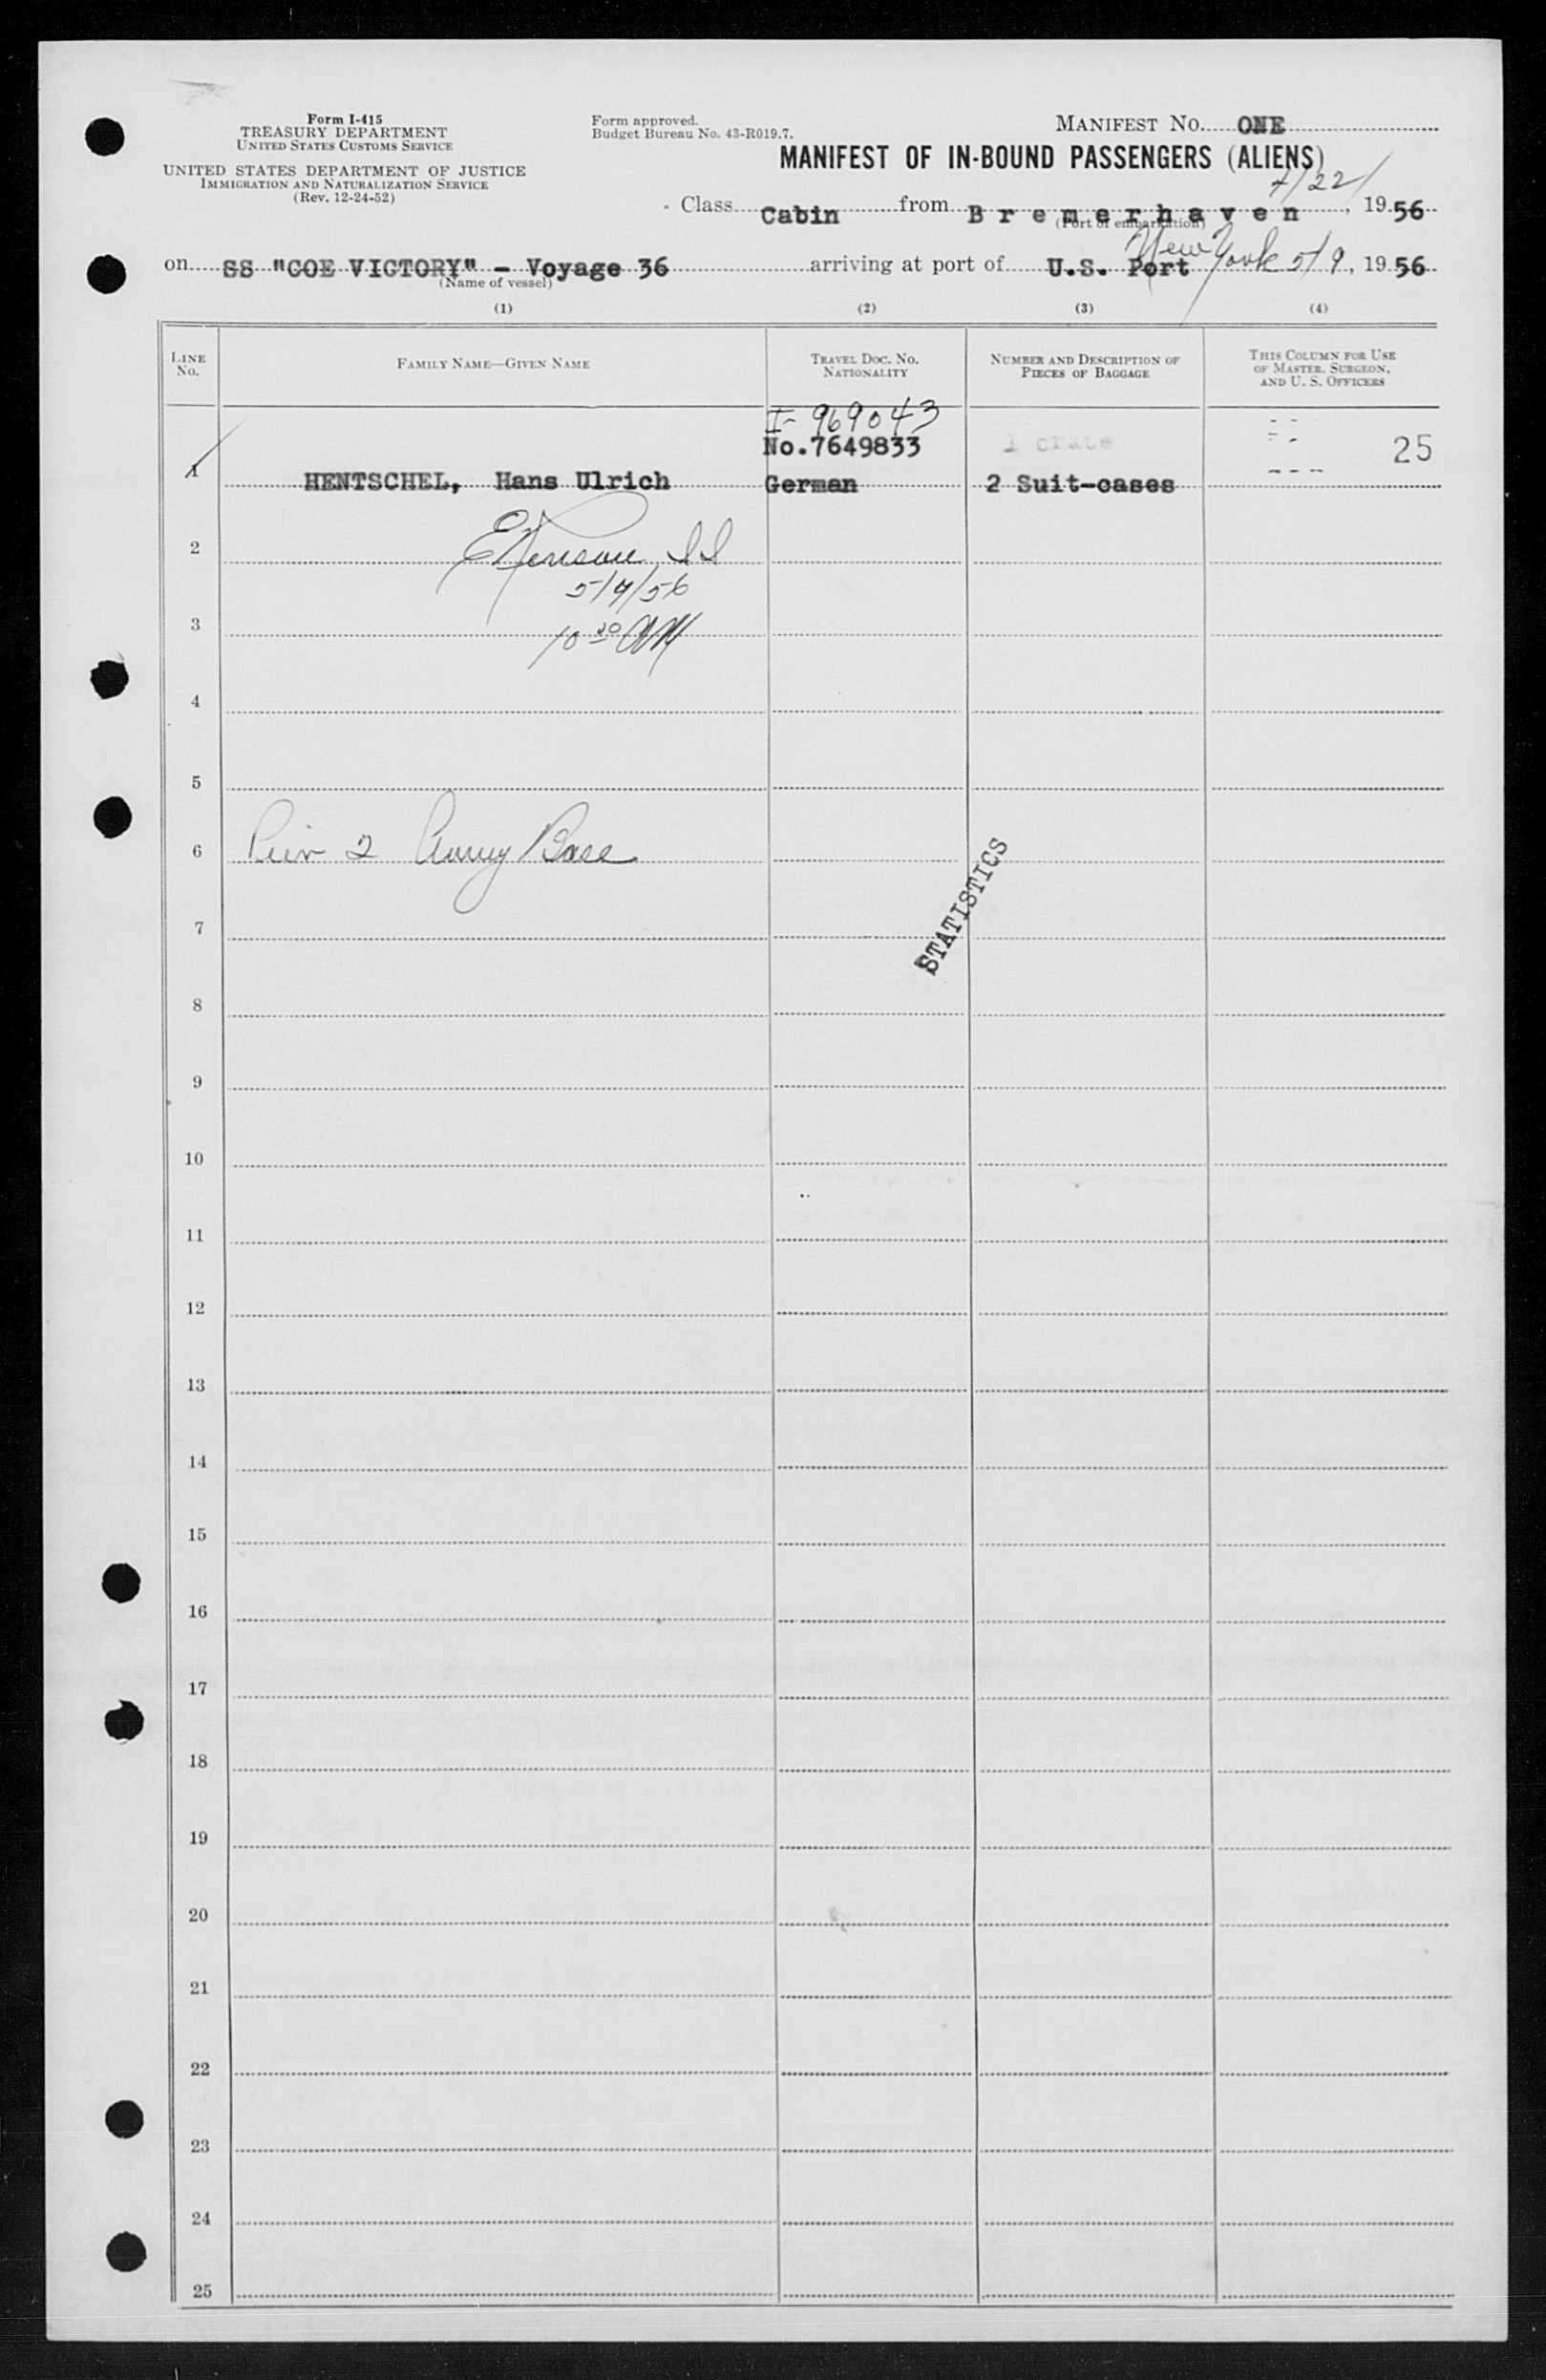 Form I-415
TREASURY DEPARTMENT
UNITED STATES CUSTOMS SERVICE
UNITED STATES DEPARTMENT OF JUSTICE
IMMIGRATION AND NATURALIZATION SERVICE
(Rev. 12-24-52)
Form approved.
Budget Bureau No. 43-R019.7.
MANIFEST No. ONE
MANIFEST OF IN-BOUND PASSENGERS (ALIENS)
4/22/
Class Cabin from Bremerhaven, 1956
(Port of embarkation)
on SS "COE VICTORY" - Voyage 36 arriving at port of U.S. Port New York 5/9, 1956
(Name of vessel)
(1) (2) (3) (4)
LINE No. FAMILY NAME—GIVEN NAME TRAVEL DOC. NO. NATIONALITY NUMBER AND DESCRIPTION OF PIECES OF BAGGAGE THIS COLUMN FOR USE OF MASTER, SURGEON, AND U. S. OFFICERS
I-969043
No.7649833 1 crate 25
1 HENTSCHEL, Hans Ulrich German 2 Suit-cases
2
5/9/56
3 10 20 AM
4
5
6 Pier 2 Army Base
STATISTICS
7
8
9
10
11
12
13
14
15
16
17
18
19
20
21
22
23
24
25